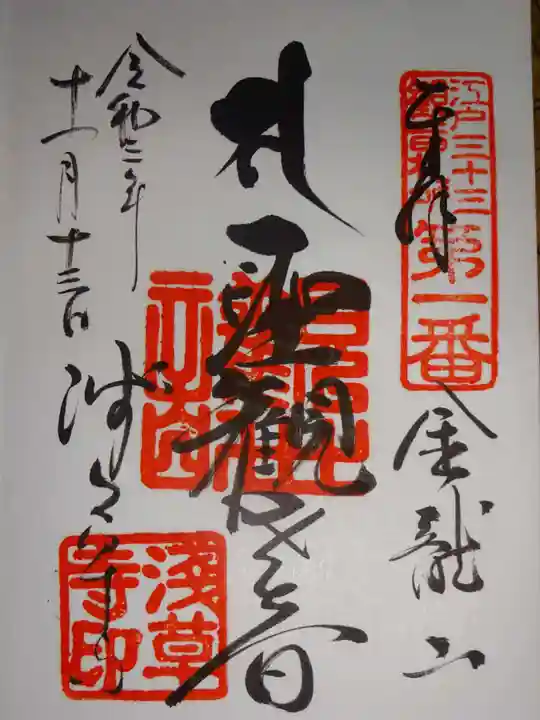 奉拝
江戸三十三
観音札所
第一番
金龍山
聖観世音
令和二年
十一月十三日
浅草寺
浅草
寺印